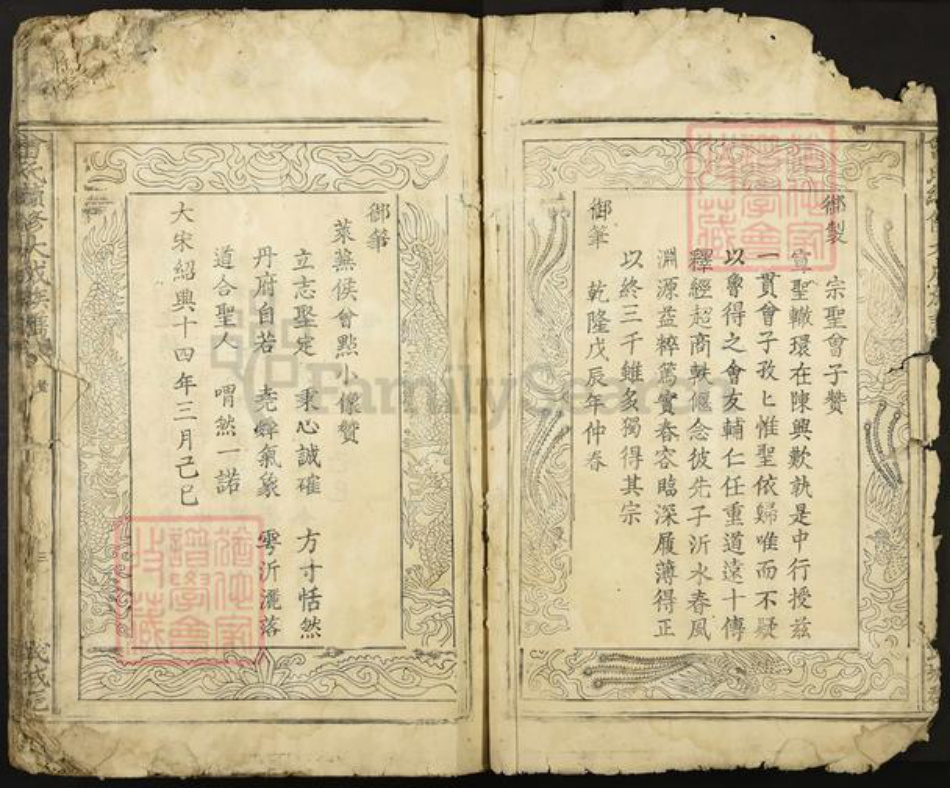 御製
宗聖曾子贊
宣聖轍環在陳興歎孰是中行授茲
一貫曾子孜匕惟聖依歸唯而不疑
以魯得之會友輔仁任重道遠十傳
釋經超商軼偃念彼先子沂水春風
淵源益粹篤實春容臨深履薄得正
以終三千雖多獨得其宗
御筆
乾隆戊辰年仲春
御筆
萊蕪侯曾點小像贊
立志堅定 秉心誠確 方寸恬然
丹府自若 堯舜氣象 雩沂灑落
道合聖人 喟然一諾
大宋紹興十四年三月己巳
氏續修大成族譜
FamilySearch